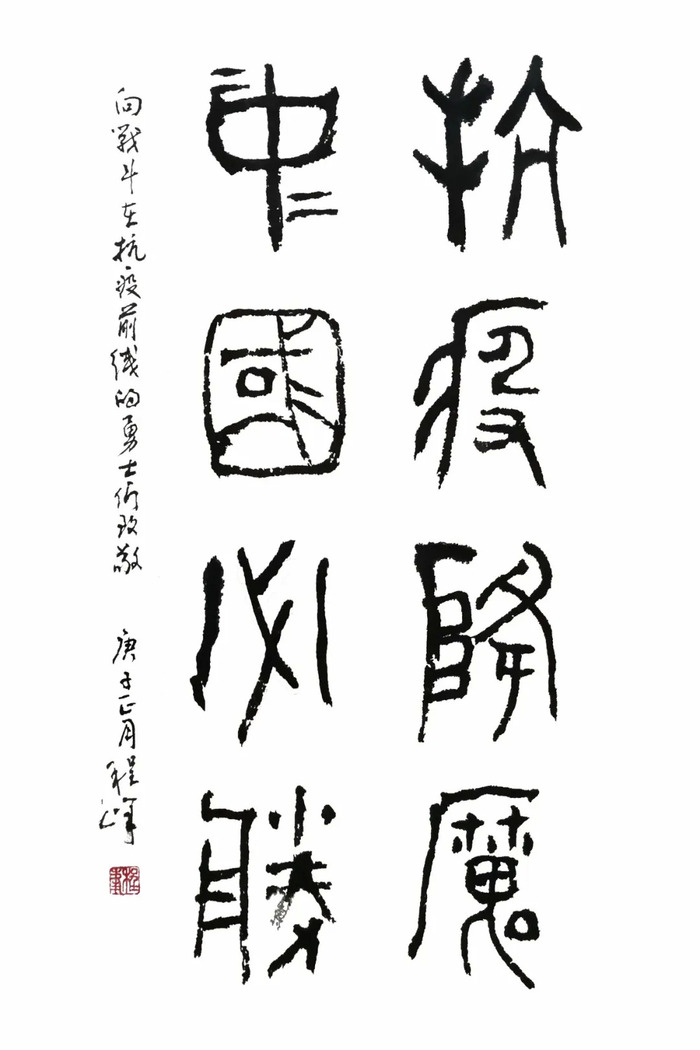 抗疫降魔
中國必勝
向戰斗在抗疫前线的勇士们致敬
庚子正月程峰